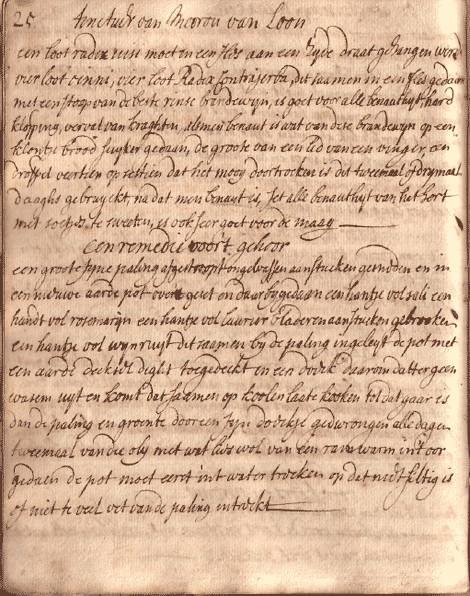 25 tinctuer van Mevrou van Loon
een loot radix moet in een fles aan een syde draat gehangen word
vier loot venni, vier loot Radix Contrajerva, dit saamen in een fles gedaan
met een stoop van de beste rinse brandewyn, is goet voor alle benautheyt, hard
klopping, verval van kraghten, als men benaut is wat van dese brandewyn op een
klontie brood suyker gedaan, de groote van een lid van een vinger, en
droppel veertien op seftien dat het mooy doortrocken is dit tweemaal of drymaal
daaghs gebruyckt, na dat men benaut is, set alle benautheyt van het hert
met soetjes te sweeten, is ook seer goet voor de maag
Een remedie voort gehoor
een groote fyne paling afgestroopt ongewassen aan stucken gesneden en in
een nieuwe aarde pot over geset en daar by gedaan een hantje vol sali een
handt vol rosemaryn een hantje vol laurier bladeren aan stucken gebrooken
een hantje vol wynruyt dit saamen by de paling ingeleyt de pot met
een aarde decktel dight toegedeckt en een doeck daarom datter geen
wasem uyt en komt dat saamen op koolen laate kooken tot dat gaar is
dan de paling en groente door een fyn doeckje gedwrongen alle dagen
tweemaal van die oly met wat wol van een ram warm int oor
gedaen de pot moet eerst int water trecken op dat niet siltig is
of niet te veel vet van de paling intreckt